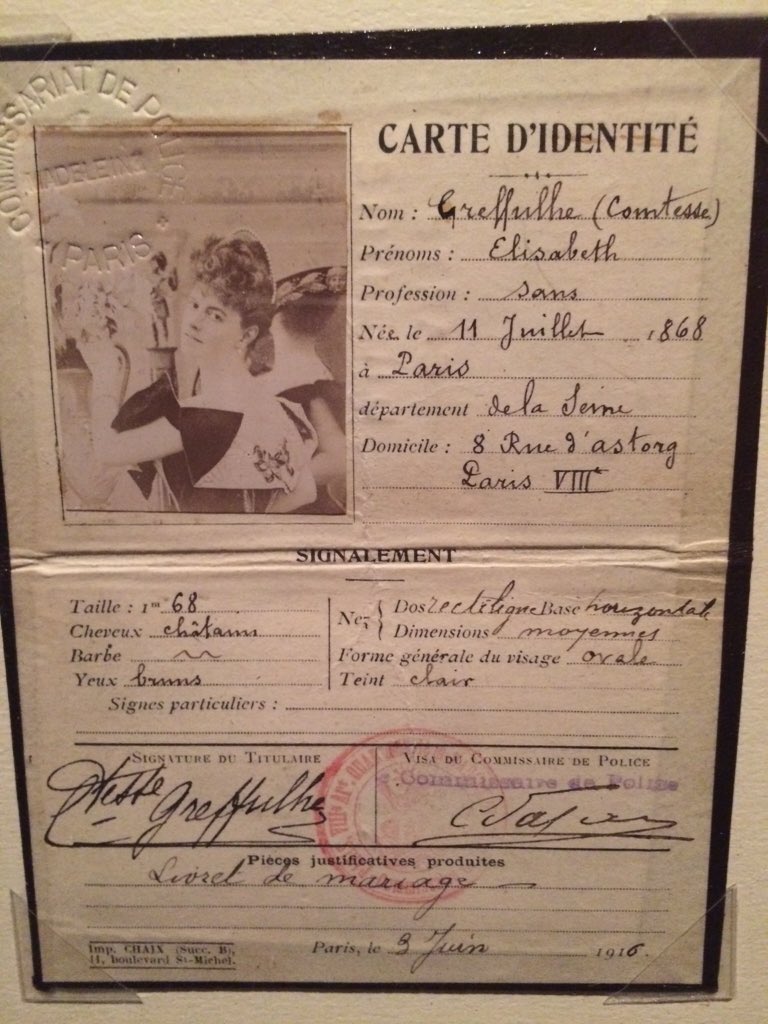 COMMISSARIAT DE POLICE
MADELEINE
PARIS
CARTE D'IDENTITÉ
Nom : Greffulhe (Comtesse)
Prénoms : Elisabeth
Profession : sans
Née le 11 Juillet 1868
à Paris
département de la Seine
Domicile : 8 Rue d'astorg
Paris VIIIe
SIGNALEMENT
Taille : 1m 68
Cheveux châtains
Barbe
Yeux bruns
Nez { Dos rectiligne Base horizontale
Dimensions moyennes
Forme générale du visage ovale
Teint clair
Signes particuliers :
SIGNATURE DU TITULAIRE
Ctesse Greffulhe
VISA DU COMMISSAIRE DE POLICE
Commissaire de Police
Pièces justificatives produites
Livret de mariage
Imp. CHAIX (Succ. B),
11, boulevard St-Michel.
Paris, le 3 Juin 1916.